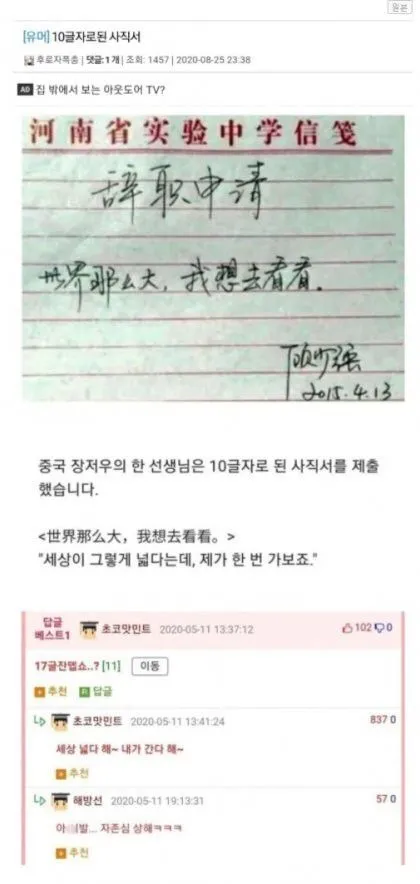 원본
[유머] 10글자로된 사직서
후로자폭송 | 댓글: 1개 | 조회: 1457 | 2020-08-25 23:38
AD 집 밖에서 보는 아웃도어 TV?
河南省实验中学信笺
辞职申请
世界那么大，我想去看看。
顾少强
2015.4.13
중국 장저우의 한 선생님은 10글자로 된 사직서를 제출
했습니다.
<世界那么大，我想去看看。>
"세상이 그렇게 넓다는데, 제가 한 번 가보죠."
답글
베스트1
초코맛민트 2020-05-11 13:37:12 102 0
17글잔뎁쇼..? [11] 이동
추천 답글
초코맛민트 2020-05-11 13:41:24 837 0
세상 넓다 해~ 내가 간다 해~
추천
해방선 2020-05-11 19:13:31 57 0
발... 자존심 상해ㅋㅋㅋ
추천